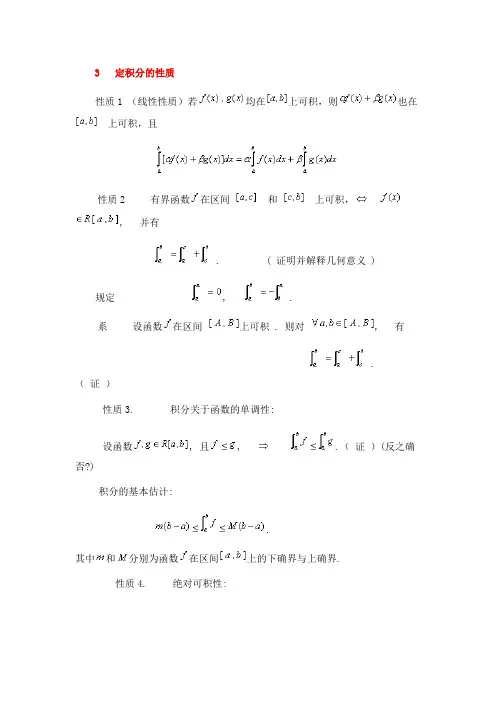 3 定积分的性质
性质1 （线性性质）若 f(x), g(x) 均在 [a,b] 上可积，则 αf(x)+βg(x) 也在
[a,b] 上可积，且
∫_a^b [αf(x)+βg(x)]dx = α∫_a^b f(x)dx + β∫_a^b g(x)dx
性质2 有界函数 f 在区间 [a,c] 和 [c,b] 上可积，⇔ f(x)
∈R[a,b], 并有
∫_a^b = ∫_a^c + ∫_c^b . ( 证明并解释几何意义 )
规定 ∫_a^a = 0, ∫_a^b = -∫_b^a .
系 设函数 f 在区间 [A,B] 上可积 . 则对 ∀a,b∈[A,B], 有
∫_a^b = ∫_a^c + ∫_c^b .
( 证 )
性质3. 积分关于函数的单调性:
设函数 f,g∈R[a,b], 且 f≤g, ⇒ ∫_a^b f ≤ ∫_a^b g . ( 证 )(反之确
否?)
积分的基本估计:
m(b-a) ≤ ∫_a^b f ≤ M(b-a).
其中 m 和 M 分别为函数 f 在区间 [a,b] 上的下确界与上确界.
性质4. 绝对可积性: